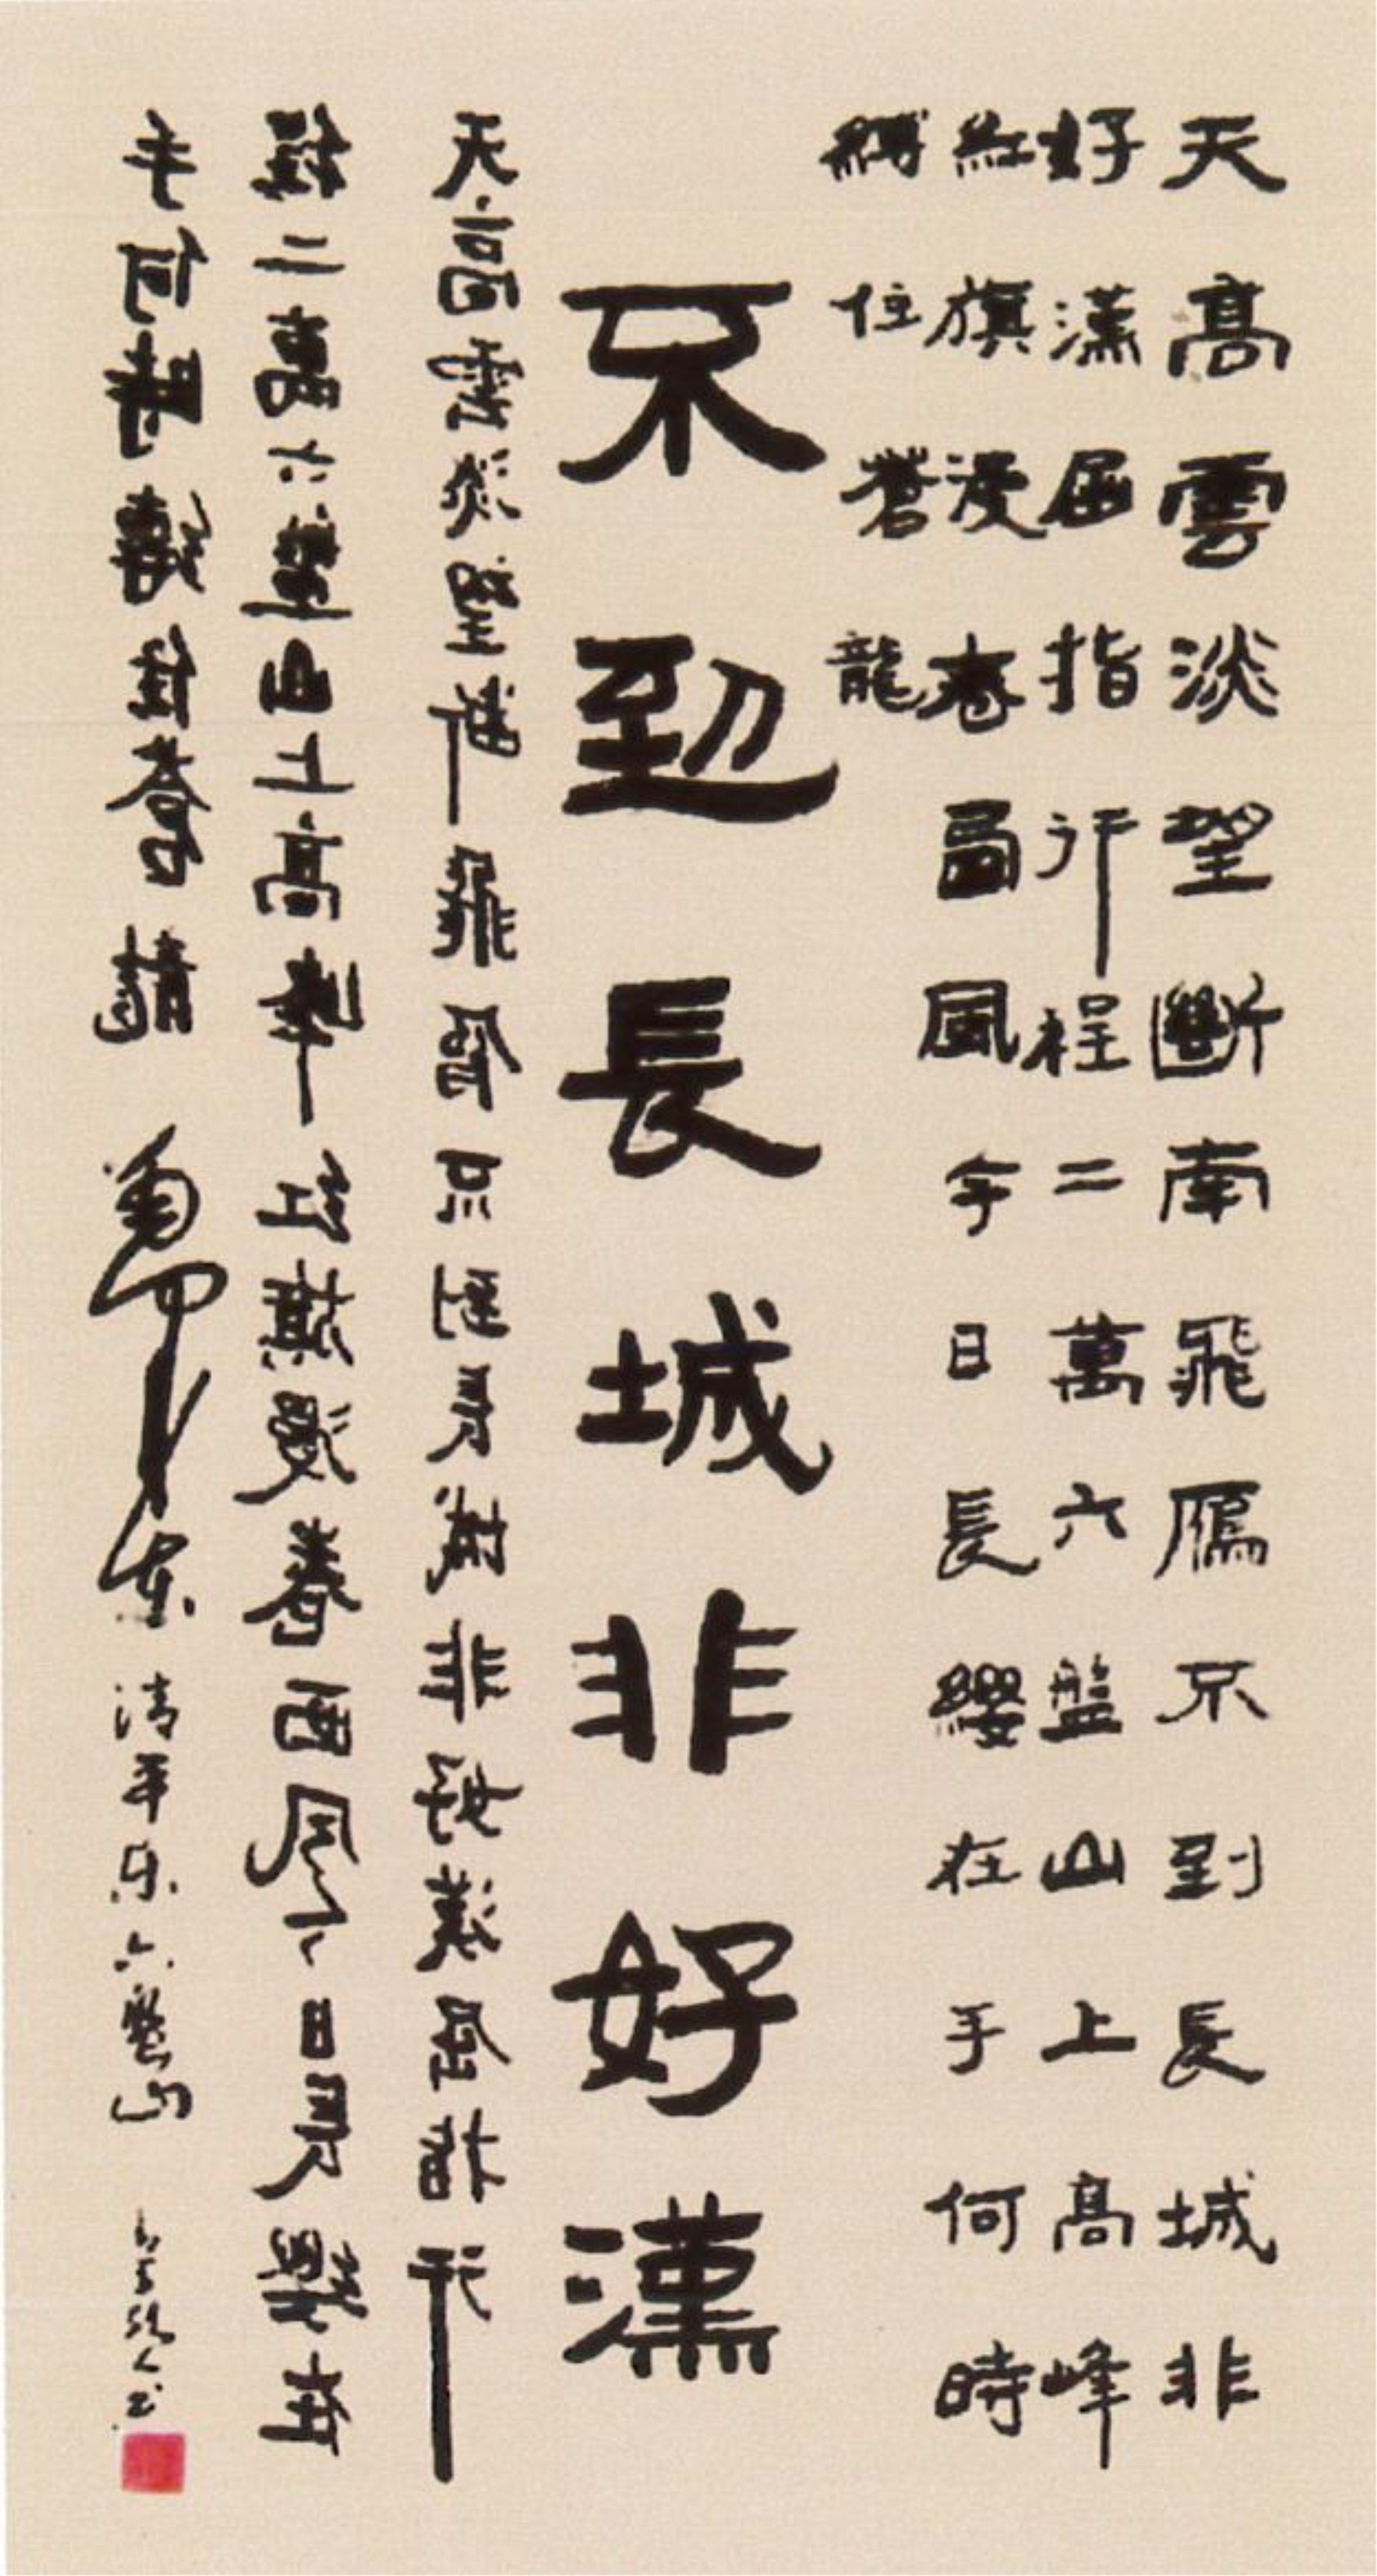 天高雲淡望斷南飛鴈不到長城非
好漢屈指行程二萬六盤山上高峰
紅旗漫卷西風今日長纓在手何時
縛住蒼龍
不到長城非好漢
天高雲淡望斷飛雁不到長城非好漢屈指行
程二萬六盤山上高峰红旗漫卷西风今日長纓在
手何時縛住蒼龍 毛澤东 清平乐六盤山